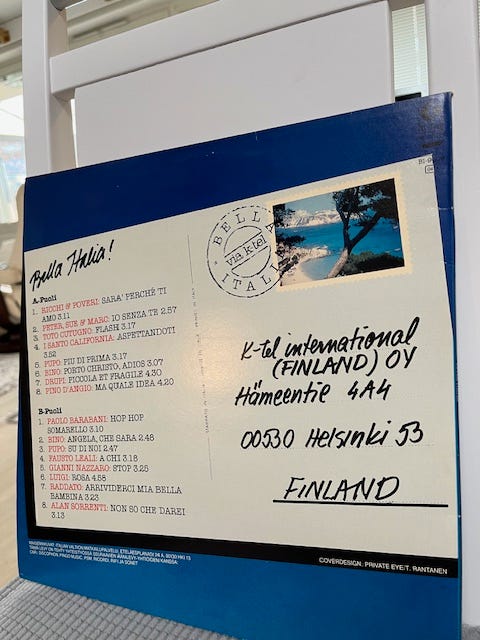 BELLA
via k-tel
ITALIA
Bella Italia!
A-Puoli
1. RICCHI & POVERI: SARA' PERCHÈ TI
AMO 3.11
2. PETER, SUE & MARC: IO SENZA TE 2.57
3. TOTO CUTUGNO: FLASH 3.17
4. I SANTO CALIFORNIA: ASPETTANDOTI
3.52
5. PUPO: PIU DI PRIMA 3.17
6. BINO: PORTO CHRISTO, ADIOS 3.07
7. DRUPI: PICCOLA E FRAGILE 4.30
8. PINO D'ANGIO: MA QUALE IDEA 4.20
B-Puoli
1. PAOLO BARABANI: HOP HOP
SOMARELLO 3.10
2. BINO: ANGELA, CHE SARA 2.48
3. PUPO: SU DI NOI 2.47
4. FAUSTO LEALI: A CHI 3.18
5. GIANNI NAZZARO: STOP 3.25
6. LUIGI: ROSA 4.58
7. RADDATO: ARRIVIDERCI MIA BELLA
BAMBINA 3.23
8. ALAN SORRENTI: NON SO CHE DAREI
3.13
K-tel international
(FINLAND) OY
Hämeentie 4A4
00530 Helsinki 53
FINLAND
COVERDESIGN: PRIVATE EYE/T. RANTANEN